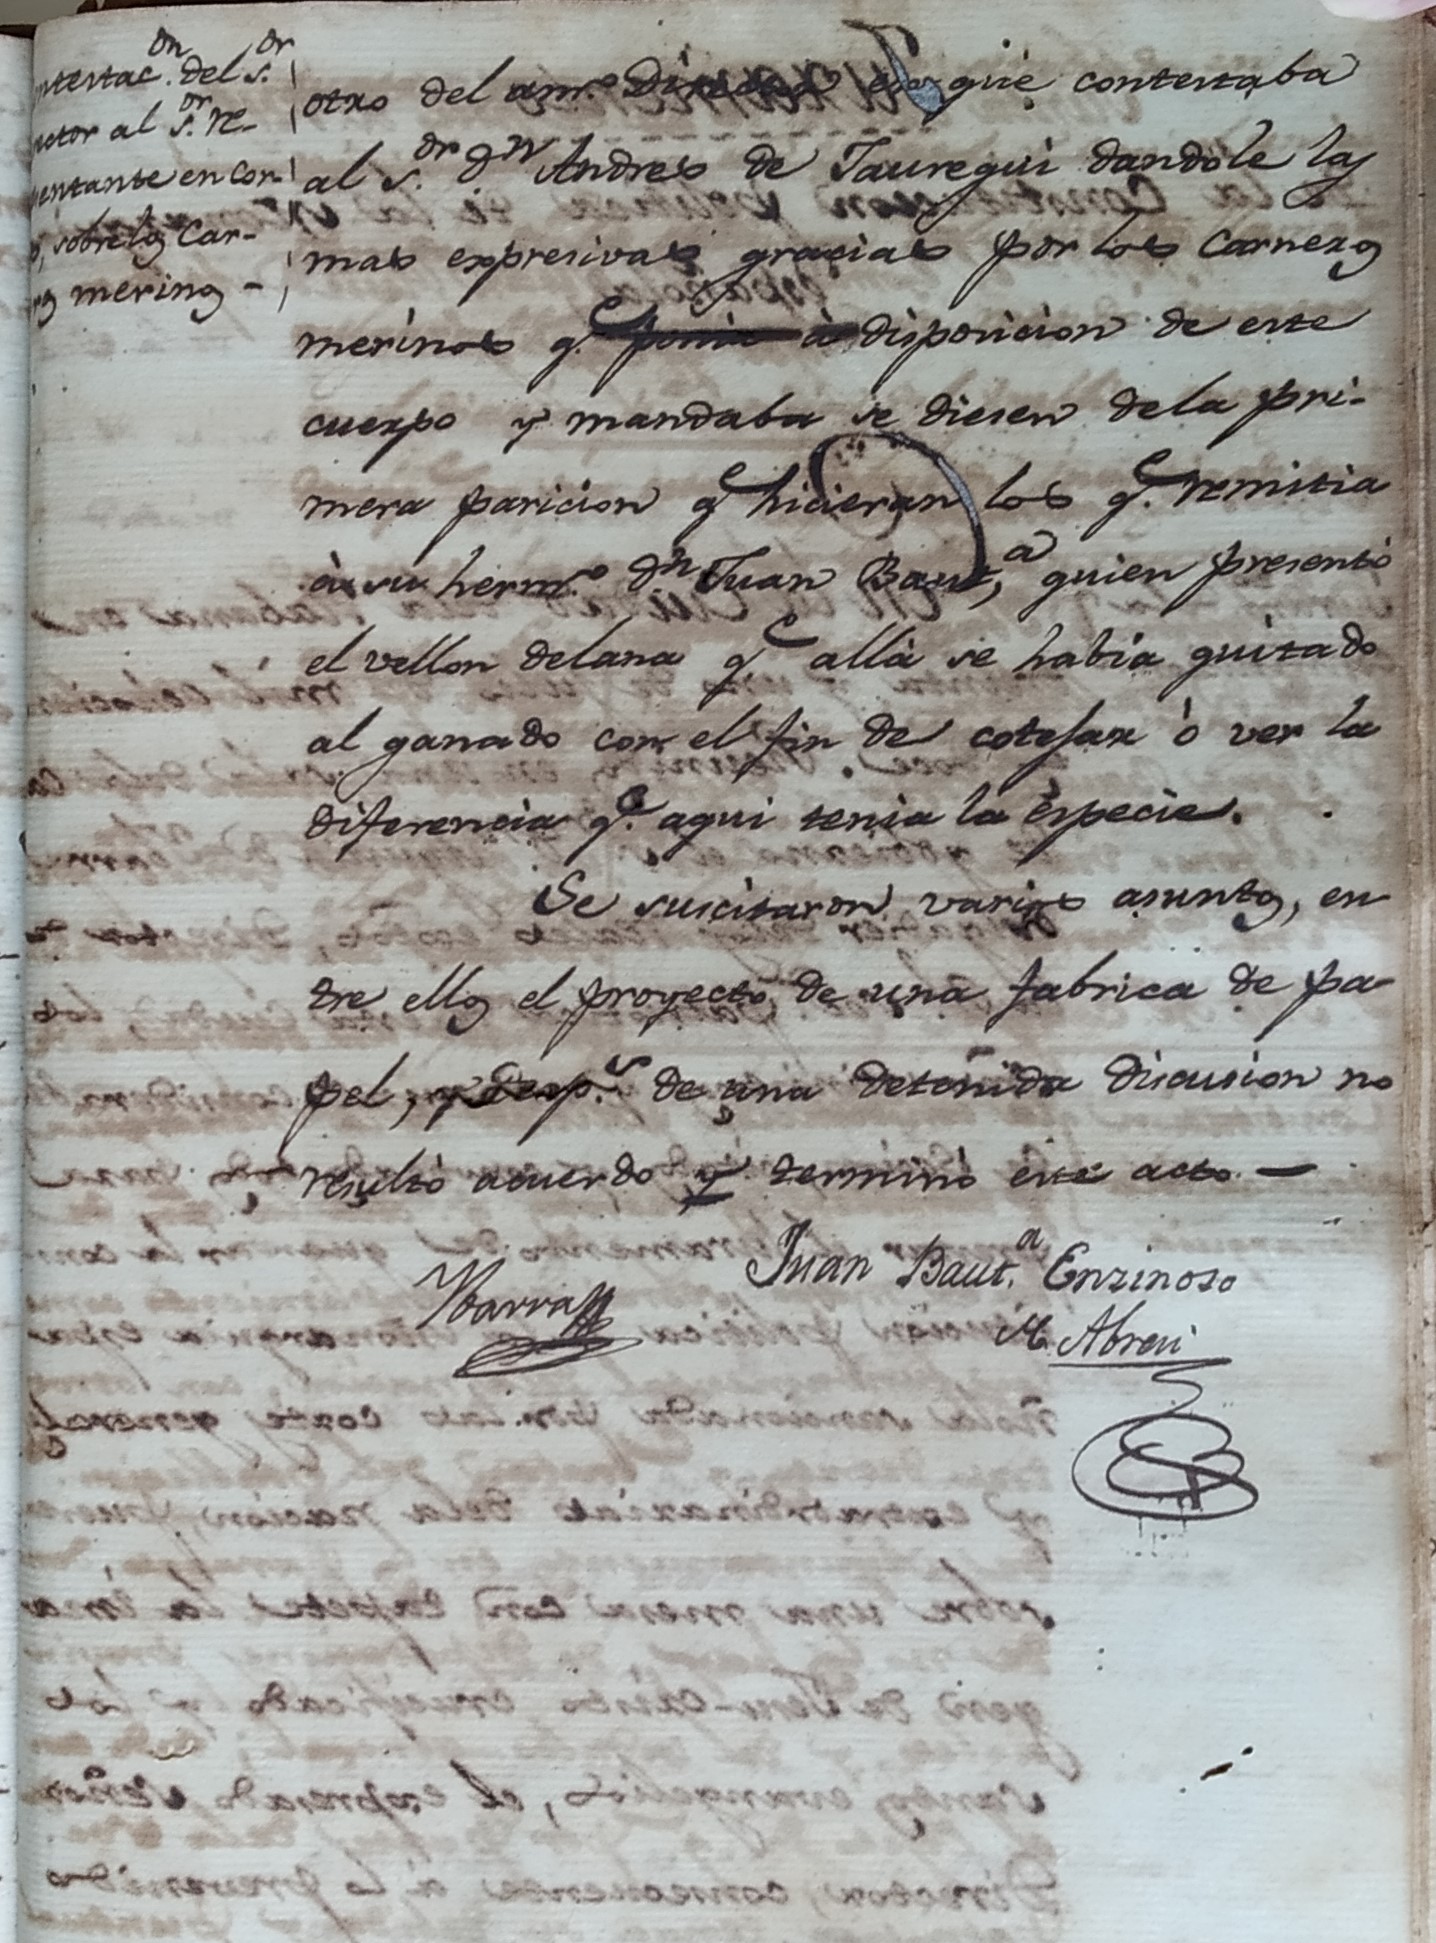 ntestac.on del S.or
rector al S.or re-
entante en Cor-
sobre los Car-
ros merinos -
otro del am.o Director en que contestaba
al S.or D.n Andres de Jauregui dandole las
mas expresivas gracias por los Carneros
merinos q.e ponia a disposicion de este
cuerpo y mandaba se diesen dela pri-
mera paricion q.e hicieran los q.e remitia
à su herm.o D.n Juan Baut.a, quien presentó
el vellon delana q.e allà se habia quitado
al ganado con el fin de cotejar ò ver la
diferencia q.e aqui tenia la especie.
Se suscitaron varios asuntos, en
tre ellos el proyecto de una fabrica de pa-
pel, y desp.s de una detenida discusion no
resultó acuerdo y terminó este acto —
Juan Baut.a Enzinoso
Ybarra
M. Abreu